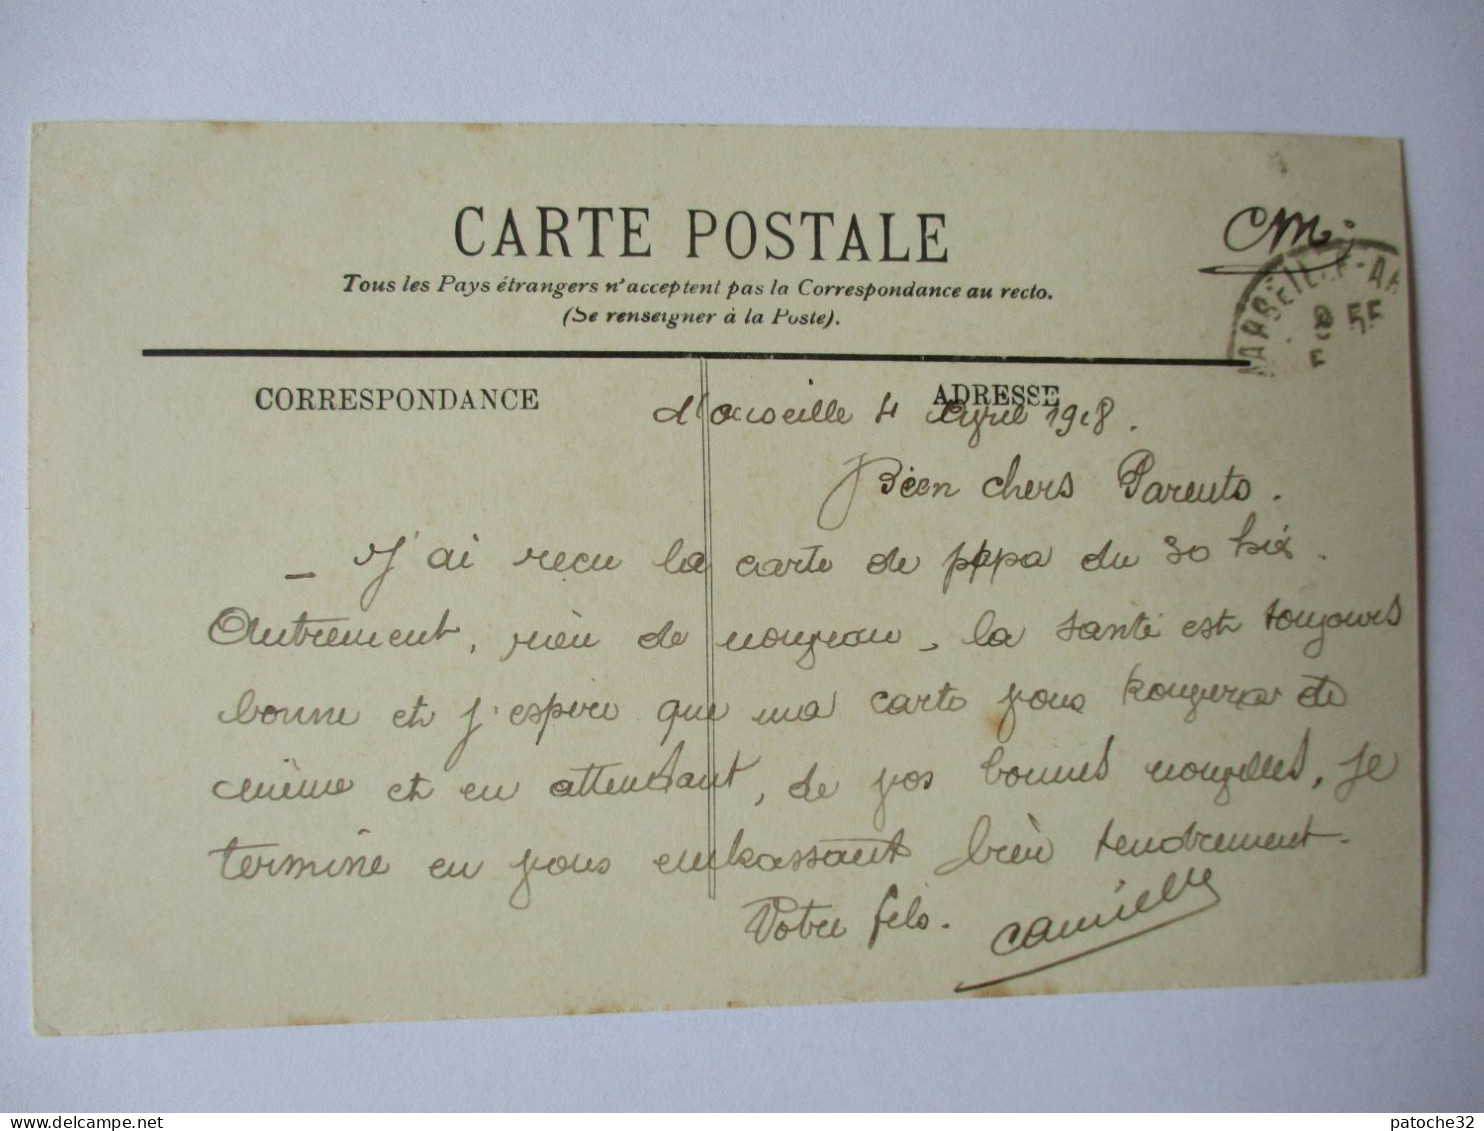 CARTE POSTALE
CM.
Tous les Pays étrangers n'acceptent pas la Correspondance au recto.
(Se renseigner à la Poste).
MARSEILLE-AR
CORRESPONDANCE
ADRESSE
Marseille 4 Avril 1918.
Bien chers Parents.
_ J'ai reçu la carte de papa du 30
Autrement, rien de nouveau, la santé est toujours
bonne et j'espère que ma carte vous trouvera de
même et en attendant, de vos bonnes nouvelles, je
termine en vous embrassant bien tendrement.
Votre fils. Camille
patoche32